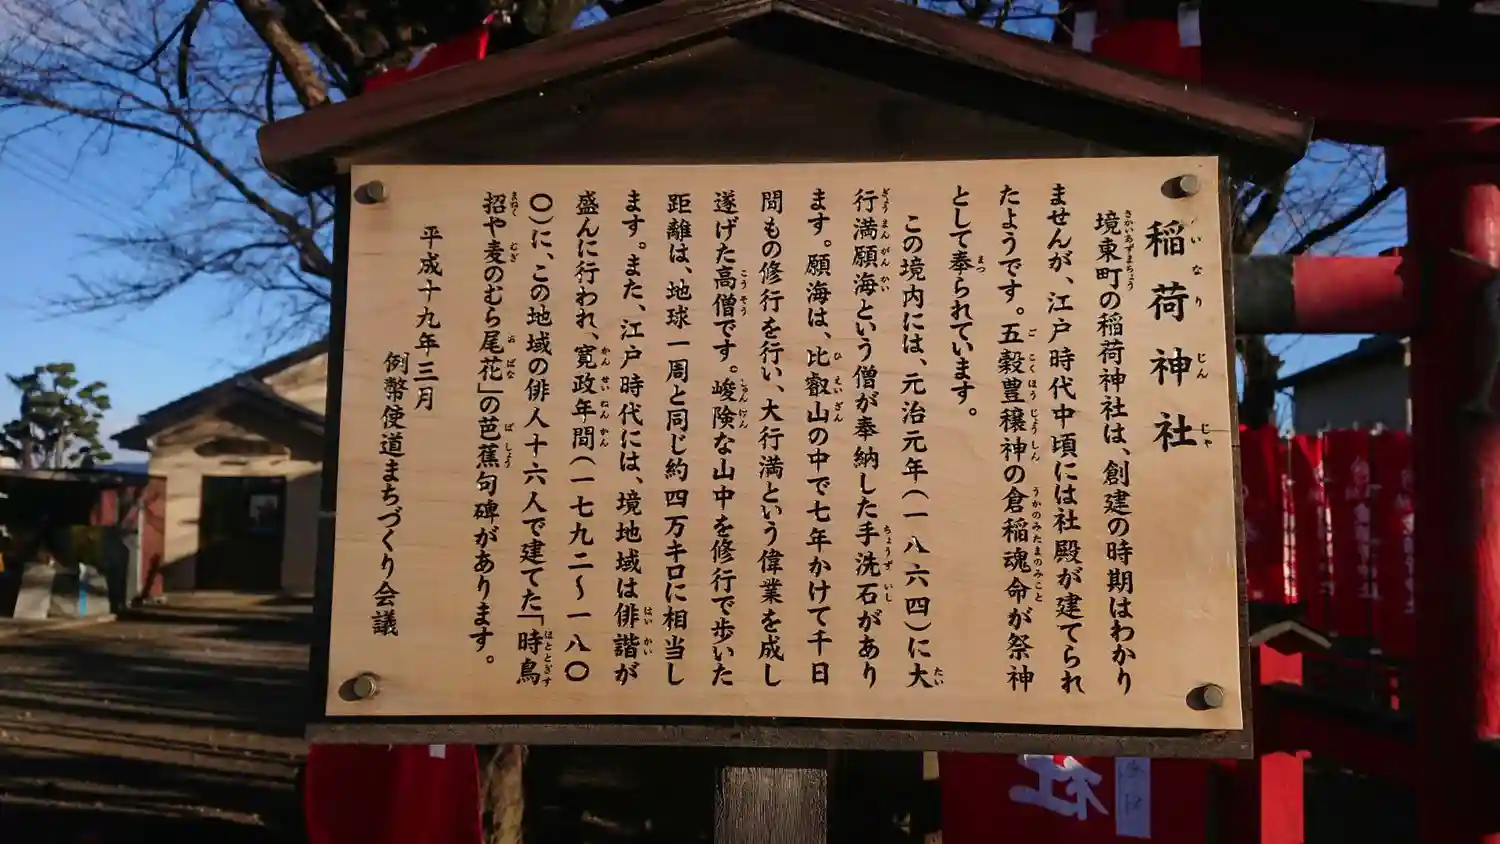 稲荷神社
境東町の稲荷神社は、創建の時期はわかり
ませんが、江戸時代中頃には社殿が建てられ
たようです。五穀豊穣神の倉稲魂命が祭神
として奉られています。
この境内には、元治元年(一八六四)に大
行満願海という僧が奉納した手洗石があり
ます。願海は、比叡山の中で七年かけて千日
間もの修行を行い、大行満という偉業を成し
遂げた高僧です。峻険な山中を修行で歩いた
距離は、地球一周と同じ約四万キロに相当し
ます。また、江戸時代には、境地域は俳諧が
盛んに行われ、寛政年間(一七九二〜一八〇
〇)に、この地域の俳人十六人で建てた「時鳥
招や麦のむら尾花」の芭蕉句碑があります。
平成十九年三月
例幣使道まちづくり会議